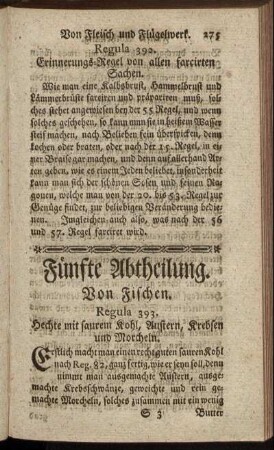 Von Fleisch und Flügelwerk. 275
Regula 392.
Erinnerungs-Regel von allen farcirten
Sachen.
Wie man eine Kalbsbrust, Hammelbrust und
Lämmerbrüste farciren und präpariren muß, sol-
ches stehet angewiesen bey der 55 Regel, und wenn
solches geschehen, so kann man sie in heißem Wasser
steif machen, nach Belieben fein überspicken, denn
kochen oder braten, oder nach der 15. Regel, in ei-
ner Braisegar machen, und denn auf allerhand Ar-
ten geben, wie es einem Jeden beliebet, insonderheit
kann man sich der schönen Sosen und feinen Ra-
gouen, welche man von der 20. bis 53. Regel zur
Genüge findet, zur beliebigen Veränderung bedie-
nen. Imgleichen auch also, was nach der 56
und 57. Regel farciret wird.
Fünfte Abtheilung.
Von Fischen.
Regula 393.
Hechte mit saurem Kohl, Austern, Krebsen
und Morcheln.
Erstlich macht man einen recht guten sauren Kohl
nach Reg. 82, ganz fertig, wie er seyn soll, denn
nimmt man ausgemachte Austern, ausge-
machte Krebsschwänze, geweichte und rein ge-
machte Morcheln, solches zusammen mit ein wenig
S 3 Butter